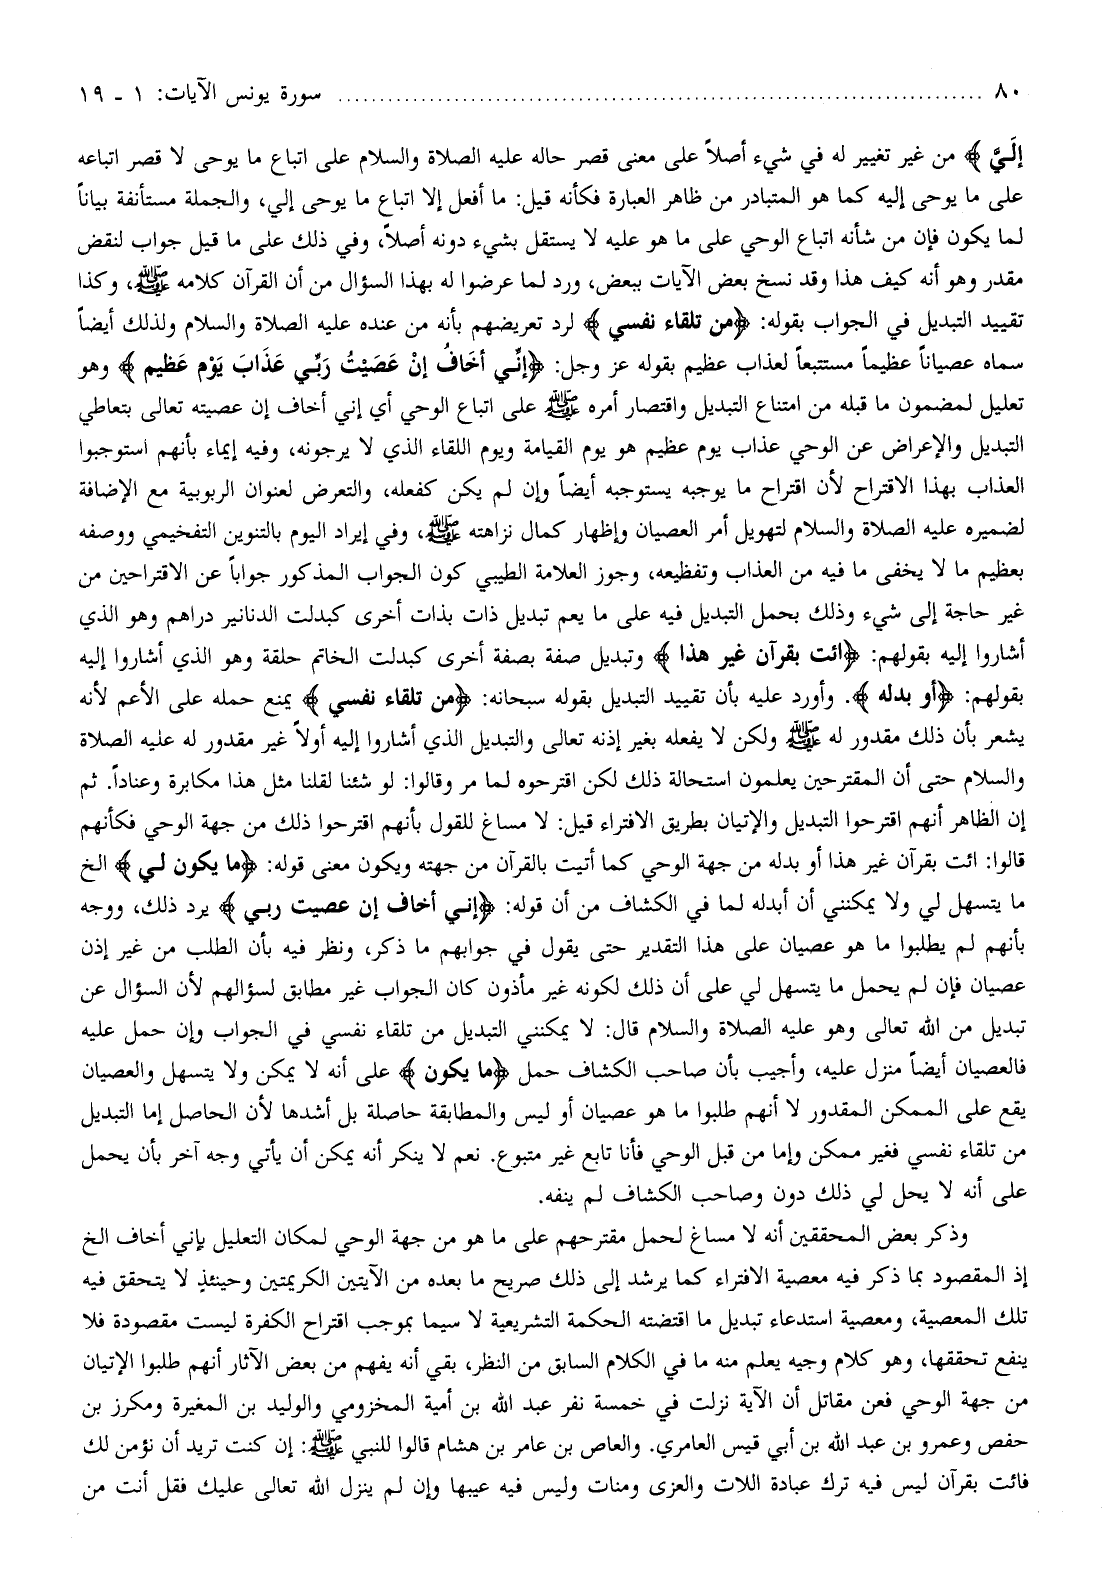 ٨٠ ........................................................................ سورة يونس الآيات: ١ - ١٩
إلَيَّ ﴾ من غير تغيير له في شيء أصلاً على معنى قصر حاله عليه الصلاة والسلام على اتباع ما يوحى لا قصر اتباعه
على ما يوحى إليه كما هو المتبادر من ظاهر العبارة فكأنه قيل: ما أفعل إلا اتباع ما يوحى إلي، والجملة مستأنفة بياناً
لما يكون فإن من شأنه اتباع الوحي على ما هو عليه لا يستقل بشيء دونه أصلاً، وفي ذلك على ما قيل جواب لنقض
مقدر وهو أنه كيف هذا وقد نسخ بعض الآيات ببعض، ورد لما عرضوا له بهذا السؤال من أن القرآن كلامه ﷺ، وكذا
تقييد التبديل في الجواب بقوله: ﴿من تلقاء نفسي ﴾ لرد تعريضهم بأنه من عنده عليه الصلاة والسلام ولذلك أيضاً
سماه عصياناً عظيماً مستتبعاً لعذاب عظيم بقوله عز وجل: ﴿إنِّي أخَافُ إنْ عَصَيْتُ رَبِّي عَذَابَ يَوْم عَظيم ﴾ وهو
تعليل لمضمون ما قبله من امتناع التبديل واقتصار أمره ﷺ على اتباع الوحي أي إني أخاف إن عصيته تعالى بتعاطي
التبديل والإعراض عن الوحي عذاب يوم عظيم هو يوم القيامة ويوم اللقاء الذي لا يرجونه، وفيه إيماء بأنهم استوجبوا
العذاب بهذا الاقتراح لأن اقتراح ما يوجبه يستوجبه أيضاً وإن لم يكن كفعله، والتعرض لعنوان الربوبية مع الإضافة
لضميره عليه الصلاة والسلام لتهويل أمر العصيان وإظهار كمال نزاهته ﷺ، وفي إيراد اليوم بالتنوين التفخيمي ووصفه
بعظيم ما لا يخفى ما فيه من العذاب وتفظيعه، وجوز العلامة الطيبي كون الجواب المذكور جواباً عن الاقتراحين من
غير حاجة إلى شيء وذلك بحمل التبديل فيه على ما يعم تبديل ذات بذات أخرى كبدلت الدنانير دراهم وهو الذي
أشاروا إليه بقولهم: ﴿ائت بقرآن غير هذا ﴾ وتبديل صفة بصفة أخرى كبدلت الخاتم حلقة وهو الذي أشاروا إليه
بقولهم: ﴿أو بدله ﴾. وأورد عليه بأن تقييد التبديل بقوله سبحانه: ﴿من تلقاء نفسي ﴾ يمنع حمله على الأعم لأنه
يشعر بأن ذلك مقدور له ﷺ ولكن لا يفعله بغير إذنه تعالى والتبديل الذي أشاروا إليه أولاً غير مقدور له عليه الصلاة
والسلام حتى أن المقترحين يعلمون استحالة ذلك لكن اقترحوه لما مر وقالوا: لو شئنا لقلنا مثل هذا مكابرة وعناداً. ثم
إن الظاهر أنهم اقترحوا التبديل والإتيان بطريق الافتراء قيل: لا مساغ للقول بأنهم اقترحوا ذلك من جهة الوحي فكأنهم
قالوا: ائت بقرآن غير هذا أو بدله من جهة الوحي كما أتيت بالقرآن من جهته ويكون معنى قوله: ﴿ما يكون لي ﴾ الخ
ما يتسهل لي ولا يمكنني أن أبدله لما في الكشاف من أن قوله: ﴿إني أخاف إن عصيت ربي ﴾ يرد ذلك، ووجه
بأنهم لم يطلبوا ما هو عصيان على هذا التقدير حتى يقول في جوابهم ما ذكر، ونظر فيه بأن الطلب من غير إذن
عصيان فإن لم يحمل ما يتسهل لي على أن ذلك لكونه غير مأذون كان الجواب غير مطابق لسؤالهم لأن السؤال عن
تبديل من الله تعالى وهو عليه الصلاة والسلام قال: لا يمكنني التبديل من تلقاء نفسي في الجواب وإن حمل عليه
فالعصيان أيضاً منزل عليه، وأجيب بأن صاحب الكشاف حمل ﴿ما يكون ﴾ على أنه لا يمكن ولا يتسهل والعصيان
يقع على الممكن المقدور لا أنهم طلبوا ما هو عصيان أو ليس والمطابقة حاصلة بل أشدها لأن الحاصل إما التبديل
من تلقاء نفسي فغير ممكن وإما من قبل الوحي فأنا تابع غير متبوع. نعم لا ينكر أنه يمكن أن يأتي وجه آخر بأن يحمل
على أنه لا يحل لي ذلك دون وصاحب الكشاف لم ينفه.
وذكر بعض المحققين أنه لا مساغ لحمل مقترحهم على ما هو من جهة الوحي لمكان التعليل بإني أخاف الخ
إذ المقصود بما ذكر فيه معصية الافتراء كما يرشد إلى ذلك صريح ما بعده من الآيتين الكريمتين وحينئذٍ لا يتحقق فيه
تلك المعصية، ومعصية استدعاء تبديل ما اقتضته الحكمة التشريعية لا سيما بموجب اقتراح الكفرة ليست مقصودة فلا
ينفع تحققها، وهو كلام وجيه يعلم منه ما في الكلام السابق من النظر، بقي أنه يفهم من بعض الآثار أنهم طلبوا الإتيان
من جهة الوحي فعن مقاتل أن الآية نزلت في خمسة نفر عبد الله بن أمية المخزومي والوليد بن المغيرة ومكرز بن
حفص وعمرو بن عبد الله بن أبي قيس العامري. والعاص بن عامر بن هشام قالوا للنبي ﷺ: إن كنت تريد أن نؤمن لك
فائت بقرآن ليس فيه ترك عبادة اللات والعزى ومنات وليس فيه عيبها وإن لم ينزل الله تعالى عليك فقل أنت من